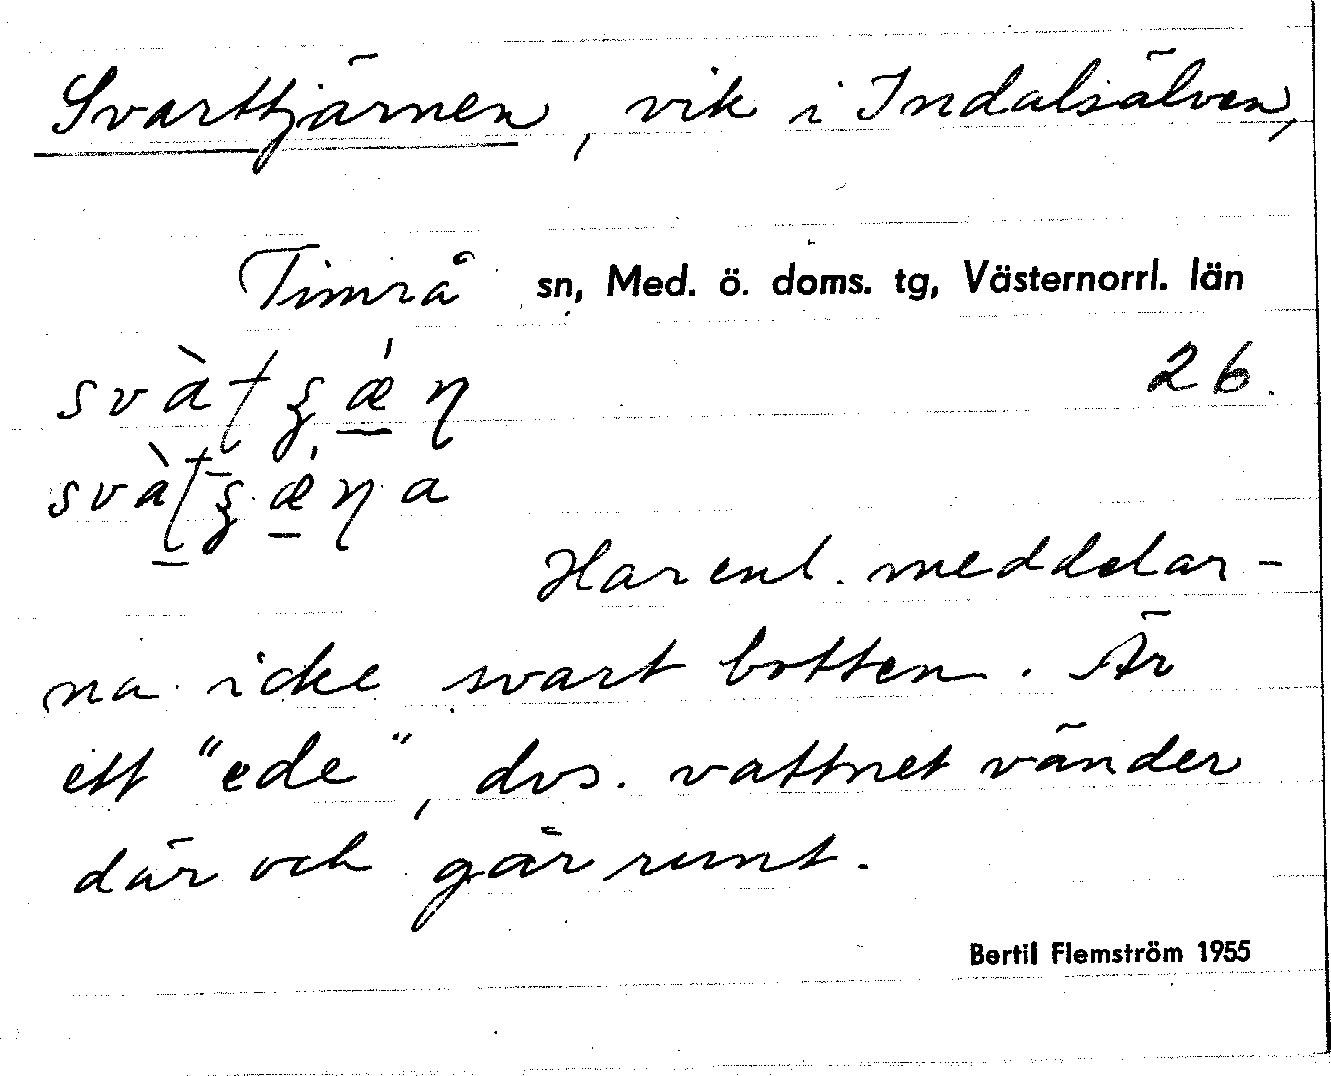 Svarttjärnen, vik i Indalsälven,
Timrå sn, Med. ö. doms. tg, Västernorrl. län
26.
Har enl. meddelar-
na icke svart botten. Är
ett "ede", dvs. vattnet vänder
där och går runt.
Bertil Flemström 1955